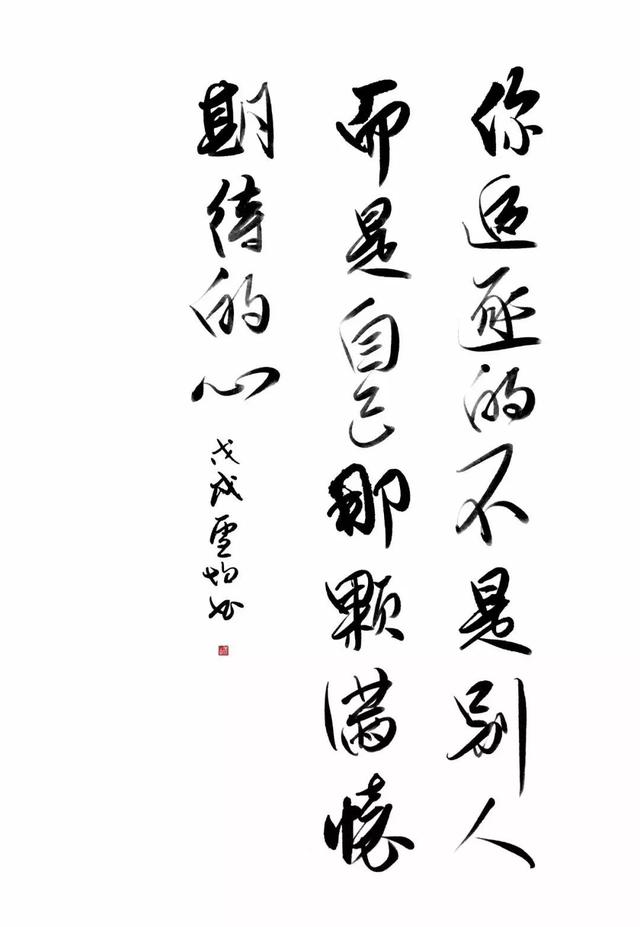 你追逐的不是别人
而是自己那颗满怀
期待的心
戊戌雪均书